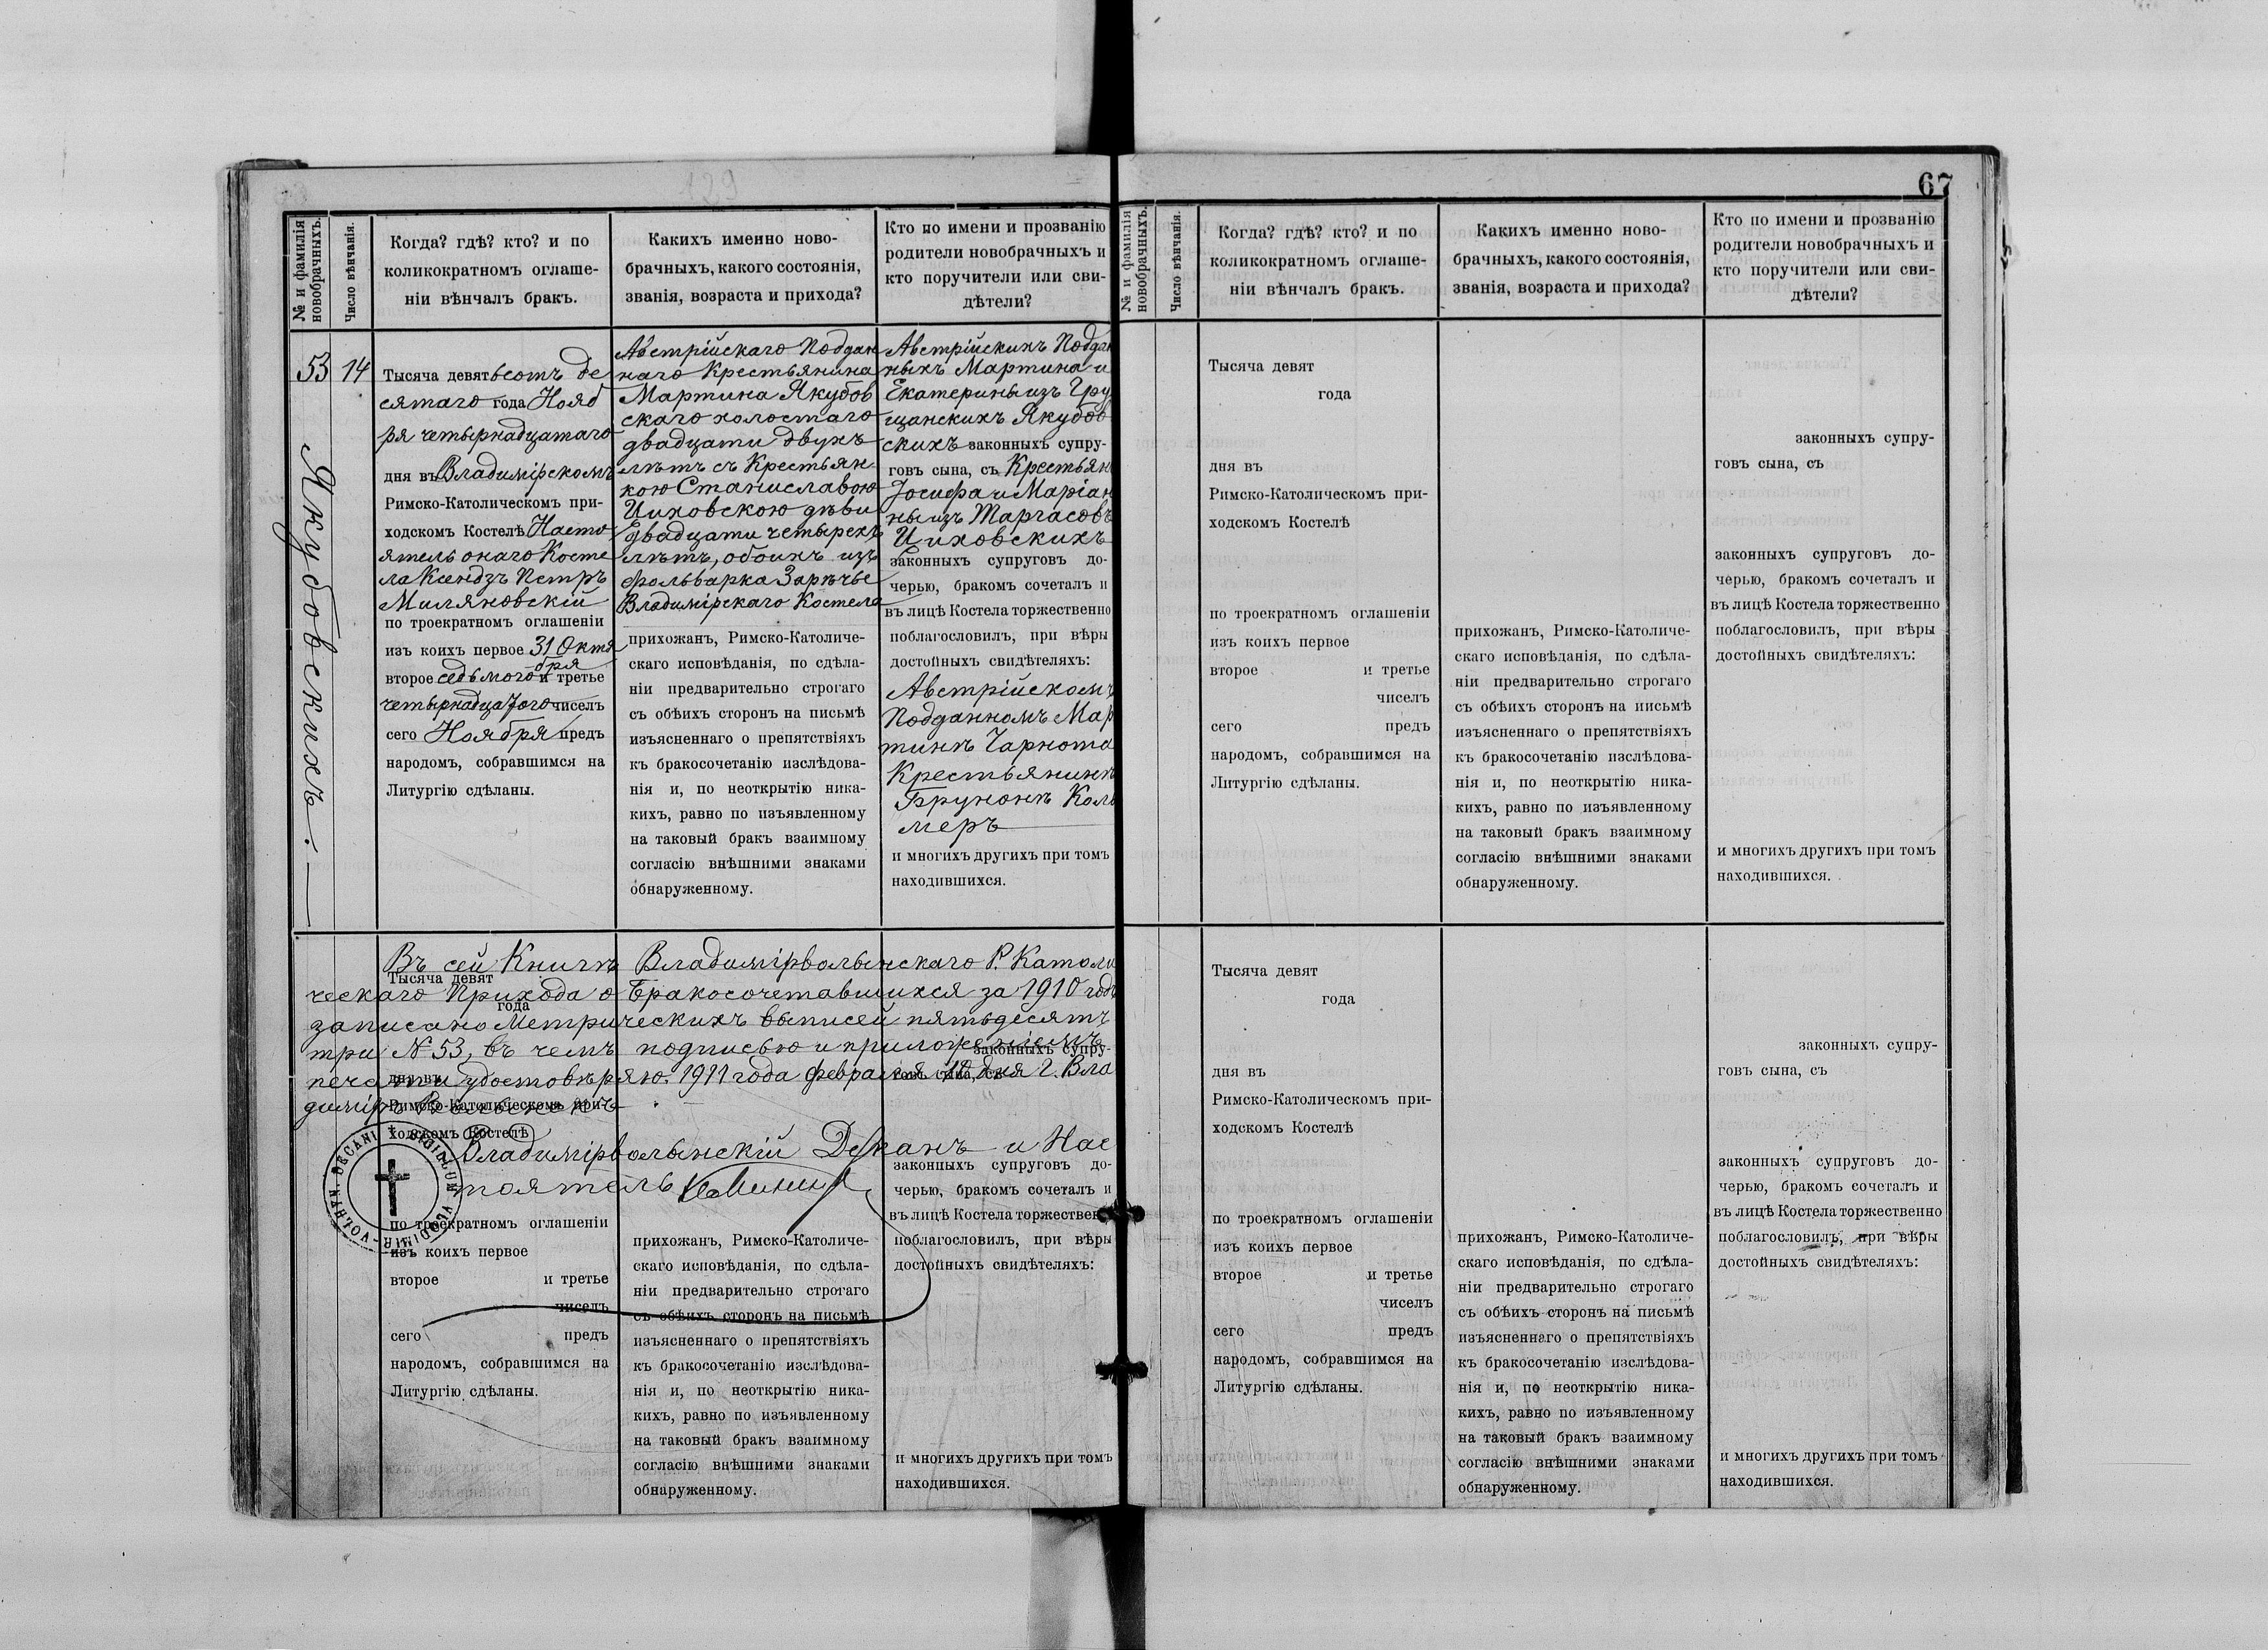 129
№ и фамилія новобрачныхъ.
Число вѣнчанія.
Когда? гдѣ? кто? и по
коликократномъ оглаше-
ніи вѣнчалъ бракъ.
Какихъ именно ново-
брачныхъ, какого состоянія,
званія, возраста и прихода?
Кто по имени и прозванію
родители новобрачныхъ и
кто поручители или сви-
дѣтели?
53
14
Якубовскихъ.
Тысяча девятьсотъ де
сятаго года Нояб
ря четырнадцатаго
дня въ Владимірскомъ
Римско-Католическомъ при-
ходскомъ Костелѣ Насто
ятель онаго Косте
ла Ксендзъ Петръ
Миляновскій
по троекратномъ оглашеніи
изъ коихъ первое 31 Октя
бря
второе седьмого и третье
четырнадцатого чиселъ
сего Ноября предъ
народомъ, собравшимся на
Литургію сдѣланы.
Австрійскаго Поддан
наго Крестьянина
Мартина Якубов
скаго холостаго
двадцати двухъ
лѣтъ съ Крестьян
кою Станиславою
Циховскою дѣви
двадцати четырехъ
лѣтъ, обоихъ изъ
фольварка Зарѣчье
Владимірскаго Костела
прихожанъ, Римско-Католиче-
скаго исповѣданія, по сдѣла-
ніи предварительно строгаго
съ обѣихъ сторонъ на письмѣ
изъясненнаго о препятствіяхъ
къ бракосочетанію изслѣдова-
нія и, по неоткрытію ника-
кихъ, равно по изъявленному
на таковый бракъ взаимному
согласію внѣшними знаками
обнаруженному.
Австрійскихъ Поддан
ныхъ Мартина и
Екатерины изъ Гру
щанскихъ Якубов
скихъ законныхъ супру-
говъ сына, съ Крестьян
Іосифа и Маріан
ны изъ Маргасовъ
Циховскихъ
законныхъ супруговъ до-
черью, бракомъ сочеталъ и
въ лицѣ Костела торжественно
поблагословилъ, при вѣры
достойныхъ свидѣтеляхъ:
Австрійскомъ
Подданномъ Мар
тинѣ Чарнота
Крестьянинѣ
Брунонѣ Коль
меръ
и многихъ другихъ при томъ
находившихся.
Въ сей Книгѣ Владимірволынскаго Р. Католи
Тысяча девят
ческаго Прихода о Бракосочетавшихся за 1910 годъ
года
записано Метрическихъ выписей пятьдесятъ
три № 53, въ чемъ подписью и приложеніемъ
законныхъ супру-
печати удостовѣряю. 1911 года февраля дня Г. Вла
димірволынскъ
Римско-Католическомъ при-
ходскомъ Костелѣ
Владимірволынскій Деканъ и Нас
тоятель
SIGILLUM DECANI VLODIMIR-VOLYN.
по троекратномъ оглашеніи
изъ коихъ первое
второе и третье
чиселъ
сего предъ
народомъ, собравшимся на
Литургію сдѣланы.
прихожанъ, Римско-Католиче-
скаго исповѣданія, по сдѣла-
ніи предварительно строгаго
съ обѣихъ сторонъ на письмѣ
изъясненнаго о препятствіяхъ
къ бракосочетанію изслѣдова-
нія и, по неоткрытію ника-
кихъ, равно по изъявленному
на таковый бракъ взаимному
согласію внѣшними знаками
обнаруженному.
законныхъ супруговъ до-
черью, бракомъ сочеталъ и
въ лицѣ Костела торжественно
поблагословилъ, при вѣры
достойныхъ свидѣтеляхъ:
и многихъ другихъ при томъ
находившихся.
67
№ и фамилія новобрачныхъ.
Число вѣнчанія.
Когда? гдѣ? кто? и по
коликократномъ оглаше-
ніи вѣнчалъ бракъ.
Какихъ именно ново-
брачныхъ, какого состоянія,
званія, возраста и прихода?
Кто по имени и прозванію
родители новобрачныхъ и
кто поручители или сви-
дѣтели?
Тысяча девят
года
дня въ
Римско-Католическомъ при-
ходскомъ Костелѣ
по троекратномъ оглашеніи
изъ коихъ первое
второе и третье
чиселъ
сего предъ
народомъ, собравшимся на
Литургію сдѣланы.
прихожанъ, Римско-Католиче-
скаго исповѣданія, по сдѣла-
ніи предварительно строгаго
съ обѣихъ сторонъ на письмѣ
изъясненнаго о препятствіяхъ
къ бракосочетанію изслѣдова-
нія и, по неоткрытію ника-
кихъ, равно по изъявленному
на таковый бракъ взаимному
согласію внѣшними знаками
обнаруженному.
законныхъ супру-
говъ сына, съ
законныхъ супруговъ до-
черью, бракомъ сочеталъ и
въ лицѣ Костела торжественно
поблагословилъ, при вѣры
достойныхъ свидѣтеляхъ:
и многихъ другихъ при томъ
находившихся.
Тысяча девят
года
дня въ
Римско-Католическомъ при-
ходскомъ Костелѣ
по троекратномъ оглашеніи
изъ коихъ первое
второе и третье
чиселъ
сего предъ
народомъ, собравшимся на
Литургію сдѣланы.
прихожанъ, Римско-Католиче-
скаго исповѣданія, по сдѣла-
ніи предварительно строгаго
съ обѣихъ сторонъ на письмѣ
изъясненнаго о препятствіяхъ
къ бракосочетанію изслѣдова-
нія и, по неоткрытію ника-
кихъ, равно по изъявленному
на таковый бракъ взаимному
согласію внѣшними знаками
обнаруженному.
законныхъ супру-
говъ сына, съ
законныхъ супруговъ до-
черью, бракомъ сочеталъ и
въ лицѣ Костела торжественно
поблагословилъ, при вѣры
достойныхъ свидѣтеляхъ:
и многихъ другихъ при томъ
находившихся.